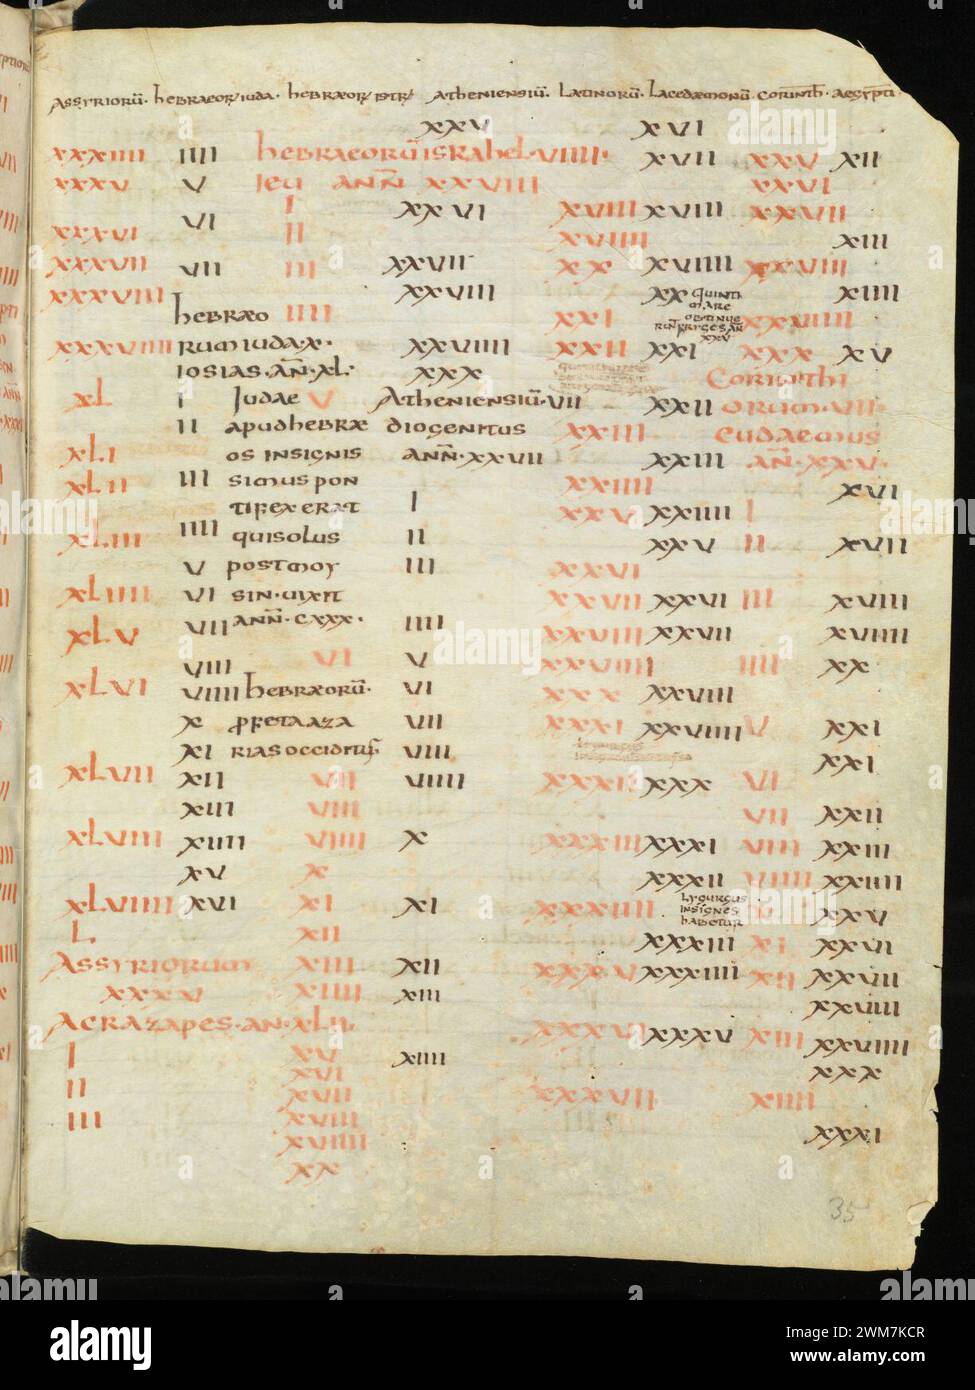 Assyriorū. hebraeor iuda. hebraeor istr Atheniensiū. Latinorū. Lacedaemonū corinth. aegypti.
xxv xvi
xxxiiii iiii hebraeorū israhel. viiii. xvii xxv xii
xxxv v ieu ann xxviii xxvi
vi i xxvi xviii xviii xxvii
xxxvi ii xviiii xiii
xxxvii vii iii xxvii xx xviiii xxviii
xxxviii xxviii xx quinti xiiii
mare
obtinue
hebraeo iiii xxi xxviiii
xxv
xxxviiii rum iuda. x. xxviiii xxii xxi xxx xv
iosias. an. xl. xxx Corinthi
xl i Judae v Atheniensiū. vii xxii orum. viii
ii apud hebrae diogenitus xxiii eudaemus
xli os insignis ann. xxvii xxiii an. xxxv.
xlii iii simus pon xxiiii xvi
tifex erat i xxv xxiiii i
xliii iiii qui solus ii xxv ii xvii
v post moy iii xxvi
xliiii vi sin. vixit xxvii xxvi iii xviii
xlv vii ann. cxxx. iiii xxviii xxvii xviiii
viii vi v xxviiii iiii xx
xlvi viiii hebraeorū. vi xxx xxviii
x profeta aza vii xxxi xxviiii v xxi
xi rias occiditur viii xxi
xlvii xii vii viiii xxxii xxx vi
xiii viii vii xxii
xlviii xiiii viiii x xxxiii xxxi viii xxiii
xv x xxxii viiii xxiiii
xlviiii xvi xi xi xxxiiii Lygurgus x xxv
insignes
habetur
L xii xxxiii xi xxvi
Assyriorum xiii xii xxxv xxxiiii xii xxvii
xxxv xiiii xiii xxviii
Acrazapes. an. xlii. xxxvi xxxv xiii xxviiii
i xv xiiii xxx
xvi
ii xvii xxxvii xiiii
iii xviii xxxi
xviiii
xx
35
alamy
Image ID: 2WM7KCR
www.alamy.com